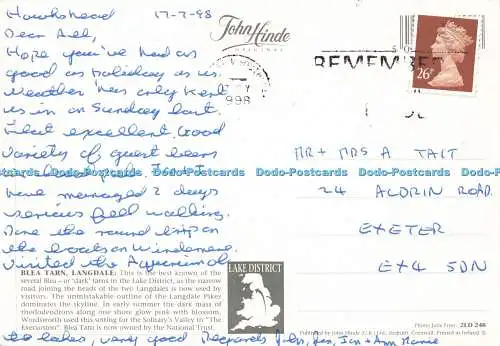 Hawkshead 17-7-98
Dear All,
Hope you've had as
good as holiday as us.
Weather has only kept
us in on Sunday last.
excellent. Good
variety of guest beers
I + I
have managed 2 days
serious fell walking.
Done the round trip on
the boats on Windermere.
Visited the Aquarium of
the lakes, very good Regards John, Jes, Ian & Ann Marie
John Hinde
ORIGINAL
REMEMBER
1998
26
MR + MRS A TAIT
24 ALDRIN ROAD
EXETER
EX4 5DN
Dodo-Postcards.com
BLEA TARN, LANGDALE: This is the best known of the
several Blea – or 'dark' tarns in the Lake District, as the narrow
road joining the heads of the two Langdales is now used by
visitors. The unmistakable outline of the Langdale Pikes
dominates the skyline. In early summer the dark mass of
rhododendrons along one shore glow pink with blossom.
Wordsworth used this setting for the Solitary's Valley in "The
Excursion". Blea Tarn is now owned by the National Trust.
LAKE DISTRICT
Photo: Julia Fryer. 2LD 248
Published by John Hinde (U.K.) Ltd., Redruth, Cornwall. Printed in Ireland